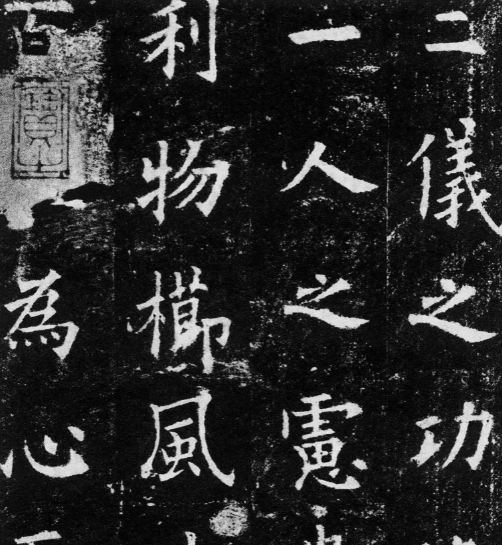 二儀之功
一人之慮
利物櫛風
百為心